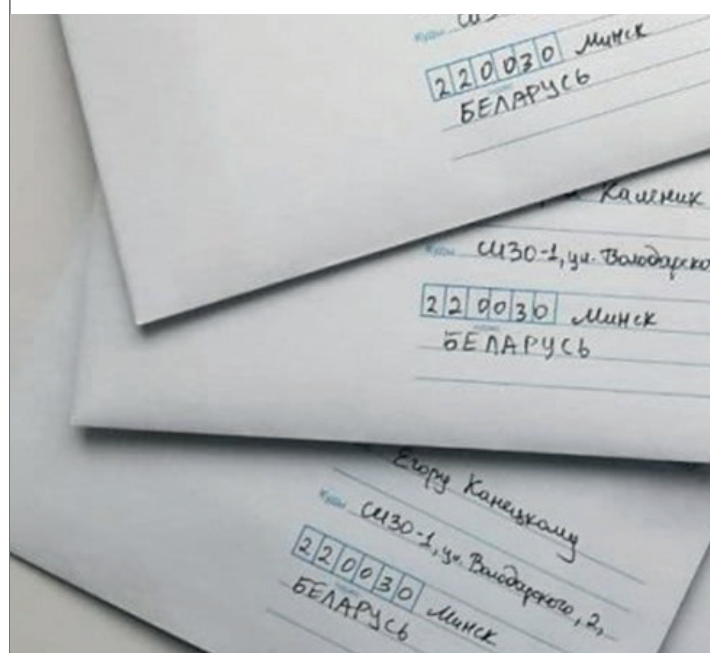 Куды
220030 Минск
БЕЛАРУСЬ
Каленик
Куды СИЗО-1, ул. Володарско
220030 Минск
БЕЛАРУСЬ
Егору Канецкому
Куды СИЗО-1, ул. Володарского, 2,
220030 Минск
БЕЛАРУСЬ